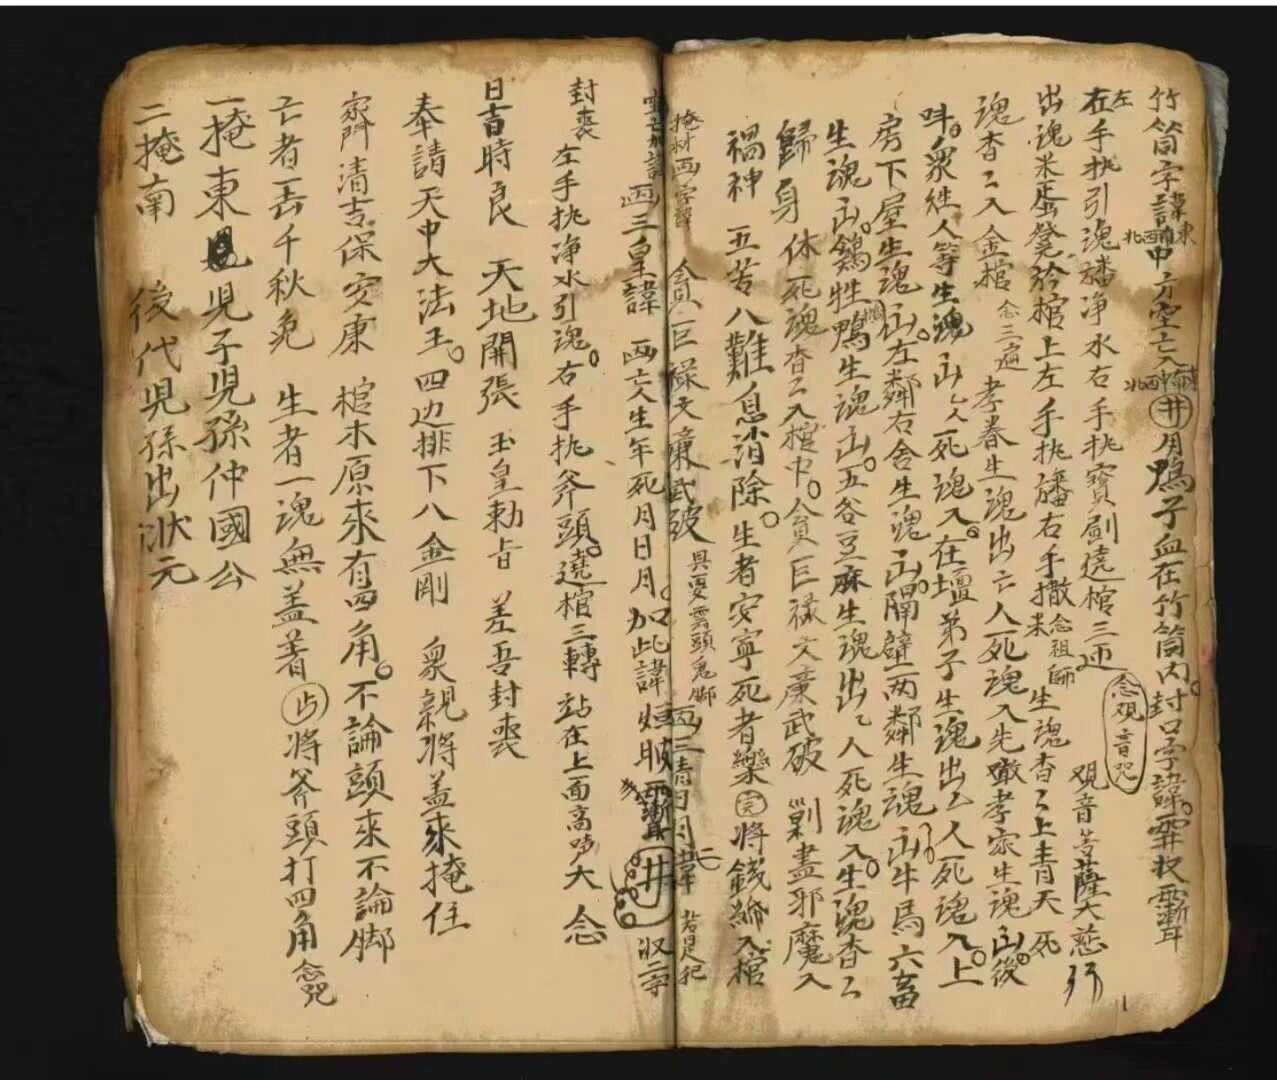 竹筒字諱 東南西北 中方空亡入 東南西北 井月鴨子血在竹筒內。封口字諱。霹 漸耳
在左手执引魂旛净水右手执寶劍遶棺三迊 念观音咒 观音菩薩大慈
出魂米 凳於棺上左手执旛右手撒米 念祖師 生魂杳〻上青天死
魂杳〻入金棺 念三遍 孝眷生魂出亡人死魂入先 孝家生魂出。後
衆姓人等生魂出亡人死魂入。在壇弟子生魂出亡人死魂入。上
房下屋生魂出。左鄰右舍生魂出。隔壁両鄰生魂出。牛馬六畜
生魂出。鷄牲鴨 生魂出。五谷豆麻生魂出亡人死魂入。生魂杳〻
歸身体死魂杳〻入棺中。貪巨祿文廉武破 剿盡邪魔入
禍神 五苦八難息消除。生者安寧死者樂 完 將錢 入棺
掩材画字諱 貪巨祿文廉武破 具要雲頭鬼脚 画三清日月諱 若是犯
画三皇諱 画亡人生年死月日月。加此諱 井 收字
封喪 左手执净水引魂。右手执斧頭。遶棺三轉 站在上面高 大念
日吉時良 天地開張 玉皇勅旨 差吾封喪
奉請天中大法王。四边排下八金剛 衆親將盖來掩住
家門清吉保安康 棺木原來有四角。不論頭來不論脚
亡者一去千秋免 生者一魂無盖着 将斧頭打四角 念咒
一掩東 兒子兒孫仲國公
二掩南 後代兒孫出狀元